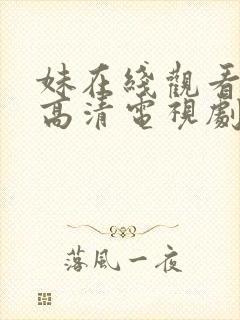 妹在綫觀看
高清電視劇
落風一夜